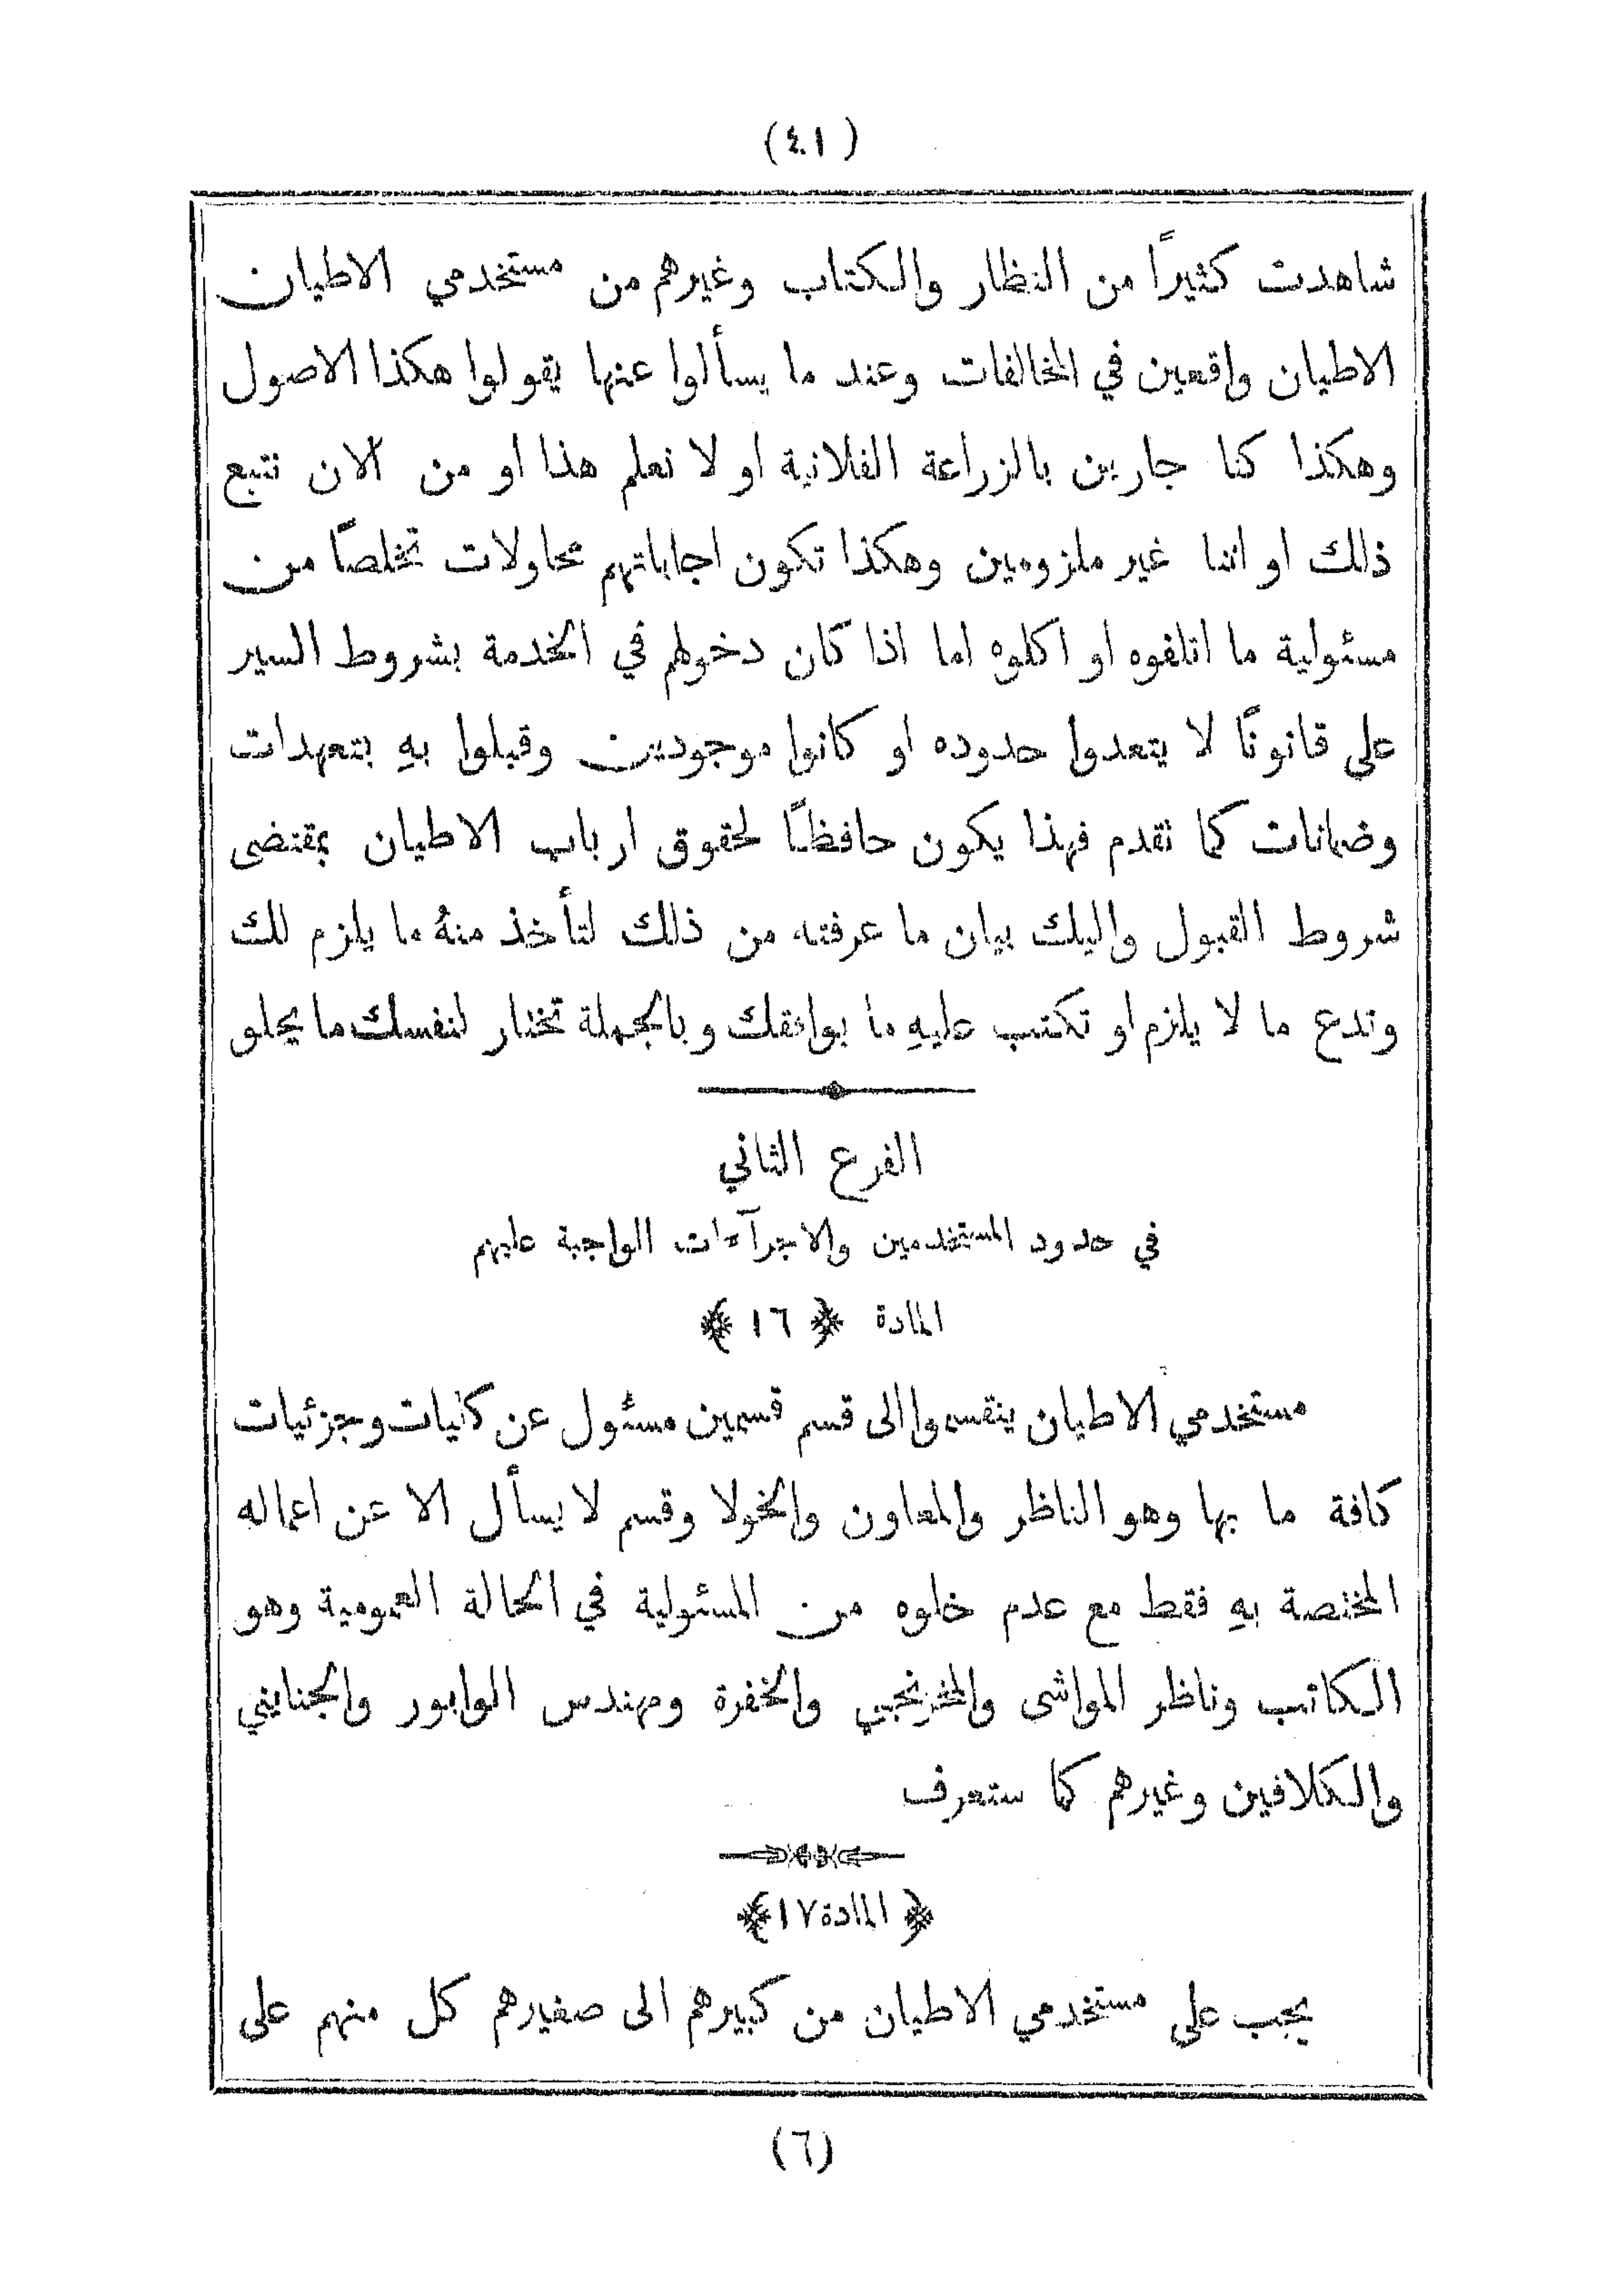 (٤١)
شاهدت كثيرًا من النظار والكتاب وغيرهم من مستخدمي الاطيان
الاطيان واقعين في المخالفات وعند ما يسألوا عنها يقولوا هكذا الاصول
وهكذا كنا جارين بالزراعة الفلانية او لا نعلم هذا او من الان نتبع
ذلك او اننا غير ملزومين وهكذا تكون اجاباتهم محاولات تخلصًا من
مسئولية ما اتلفوه او اكلوه اما اذا كان دخولهم في الخدمة بشروط السير
على قانونًا لا يتعدوا حدوده او كانوا موجودين وقبلوا بهِ بتعهدات
وضمانات كما تقدم فهذا يكون حافظًا لحقوق ارباب الاطيان بمقتضى
شروط القبول واليك بيان ما عرفته من ذلك لتأخذ منهُ ما يلزم لك
وتدع ما لا يلزم او تكتب عليهِ ما يوافقك وبالجملة تختار لنفسك ما يحلو
الفرع الثاني
في حدود المستخدمين والاجرآءات الواجبة عليهم
المادة ﴿١٦﴾
مستخدمي الاطيان ينقسموا الى قسم قسمين مسئول عن كليات وجزئيات
كافة ما بها وهو الناظر والمعاون والخولا وقسم لا يسأل الا عن اعماله
المختصة بهِ فقط مع عدم خلوه من المسئولية في الحالة العمومية وهو
الكاتب وناظر المواشى والمخزنجي والخفرة ومهندس الوابور والجنايني
والكلافين وغيرهم كما ستعرف
﴿المادة ١٧﴾
يجب على مستخدمي الاطيان من كبيرهم الى صغيرهم كل منهم على
(٦)